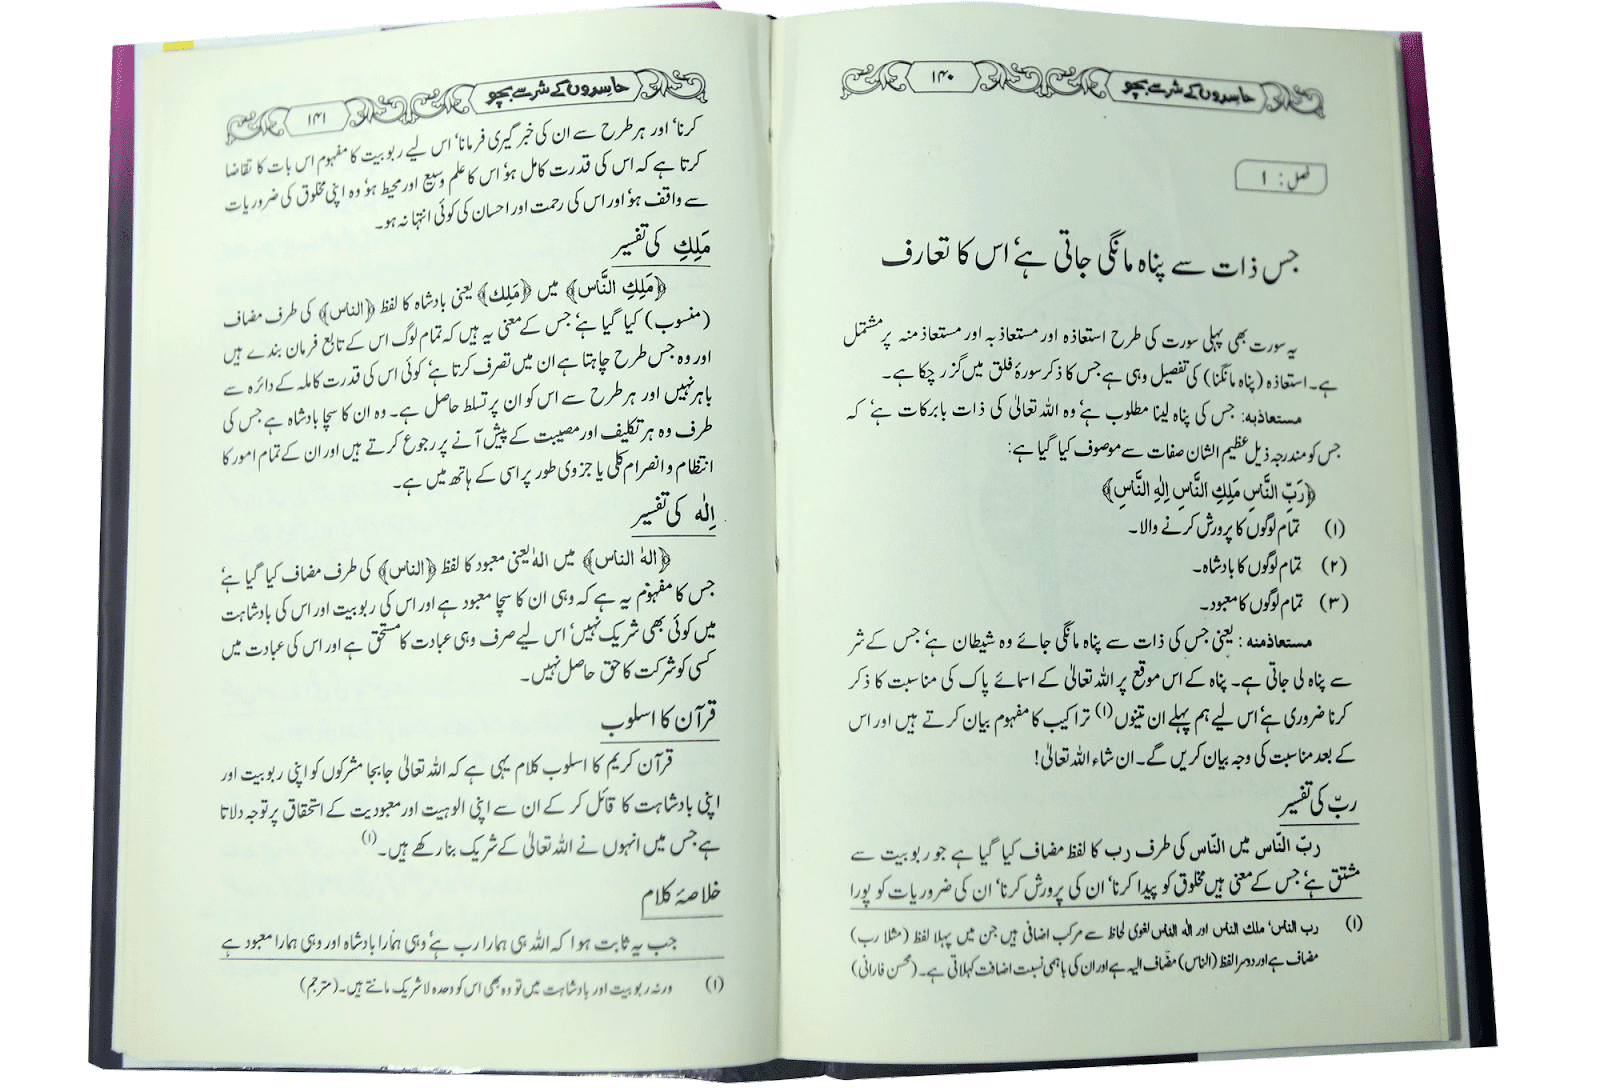 حاسدوں کے شر سے بچو
۱۴۰
فصل : ۱
جس ذات سے پناہ مانگی جاتی ہے‘ اس کا تعارف
یہ سورت بھی پہلی سورت کی طرح استعاذہ اور مستعاذ بہ اور مستعاذ منہ پر مشتمل
ہے۔ استعاذہ (پناہ مانگنا) کی تفصیل وہی ہے جس کا ذکر سورۂ فلق میں گزر چکا ہے۔
مستعاذبہ: جس کی پناہ لینا مطلوب ہے‘ وہ اللہ تعالیٰ کی ذات بابرکات ہے‘ کہ
جس کو مندرجہ ذیل عظیم الشان صفات سے موصوف کیا گیا ہے:
﴿رَبِّ النَّاسِ مَلِكِ النَّاسِ اِلٰهِ النَّاسِ﴾
(۱) تمام لوگوں کا پرورش کرنے والا۔
(۲) تمام لوگوں کا بادشاہ۔
(۳) تمام لوگوں کا معبود۔
مستعاذمنہ : یعنی جس کی ذات سے پناہ مانگی جائے وہ شیطان ہے‘ جس کے شر
سے پناہ لی جاتی ہے۔ پناہ کے اس موقع پر اللہ تعالیٰ کے اسمائے پاک کی مناسبت کا ذکر
کرنا ضروری ہے‘ اس لیے ہم پہلے ان تینوں(۱) تراکیب کا مفہوم بیان کرتے ہیں اور اس
کے بعد مناسبت کی وجہ بیان کریں گے۔ ان شاء اللہ تعالیٰ!
ربّ کی تفسیر
ربّ النّاس میں النّاس کی طرف رب کا لفظ مضاف کیا گیا ہے جو ربوبیت سے
مشتق ہے‘ جس کے معنی ہیں مخلوق کو پیدا کرنا‘ ان کی پرورش کرنا‘ ان کی ضروریات کو پورا
(۱) رب الناس‘ ملک الناس اور الٰہ الناس لغوی لحاظ سے مرکب اضافی ہیں جن میں پہلا لفظ (مثلا رب)
مضاف ہے اور دوسرا لفظ (الناس) مضاف الیہ ہے اور ان کی باہمی نسبت اضافت کہلاتی ہے۔ (محسن فارانی)
حاسدوں کے شر سے بچو
۱۴۱
کرنا‘ اور ہر طرح سے ان کی خبر گیری فرمانا‘ اس لیے ربوبیت کا مفہوم اس بات کا تقاضا
کرتا ہے کہ اس کی قدرت کامل ہو‘ اس کا علم وسیع اور محیط ہو‘ وہ اپنی مخلوق کی ضروریات
سے واقف ہو‘ اور اس کی رحمت اور احسان کی کوئی انتہا نہ ہو۔
مَلِكِ کی تفسیر
﴿مَلِكِ النَّاس﴾ میں ﴿مَلِك﴾ یعنی بادشاہ کا لفظ ﴿الناس﴾ کی طرف مضاف
(منسوب) کیا گیا ہے‘ جس کے معنی یہ ہیں کہ تمام لوگ اس کے تابع فرمان بندے ہیں
اور وہ جس طرح چاہتا ہے ان میں تصرف کرتا ہے‘ کوئی اس کی قدرت کاملہ کے دائرہ سے
باہر نہیں اور ہر طرح سے اس کو ان پر تسلط حاصل ہے۔ وہ ان کا سچا بادشاہ ہے جس کی
طرف وہ ہر تکلیف اور مصیبت کے پیش آنے پر رجوع کرتے ہیں اور ان کے تمام امور کا
انتظام و انصرام کلی یا جزوی طور پر اسی کے ہاتھ میں ہے۔
اِلٰہ کی تفسیر
﴿الٰہ الناس﴾ میں الٰہ یعنی معبود کا لفظ ﴿الناس﴾ کی طرف مضاف کیا گیا ہے‘
جس کا مفہوم یہ ہے کہ وہی ان کا سچا معبود ہے اور اس کی ربوبیت اور اس کی بادشاہت
میں کوئی بھی شریک نہیں‘ اس لیے صرف وہی عبادت کا مستحق ہے اور اس کی عبادت میں
کسی کو شرکت کا حق حاصل نہیں۔
قرآن کا اسلوب
قرآن کریم کا اسلوب کلام یہی ہے کہ اللہ تعالیٰ جابجا مشرکوں کو اپنی ربوبیت اور
اپنی بادشاہت کا قائل کر کے ان سے اپنی الوہیت اور معبودیت کے استحقاق پر توجہ دلاتا
ہے جس میں انہوں نے اللہ تعالیٰ کے شریک بنا رکھے ہیں۔(۱)
خلاصۂ کلام
جب یہ ثابت ہوا کہ اللہ ہی ہمارا رب ہے‘ وہی ہمارا بادشاہ اور وہی ہمارا معبود ہے
(۱) ورنہ ربوبیت اور بادشاہت میں تو وہ بھی اس کو وحدہ لا شریک مانتے ہیں۔ (مترجم)